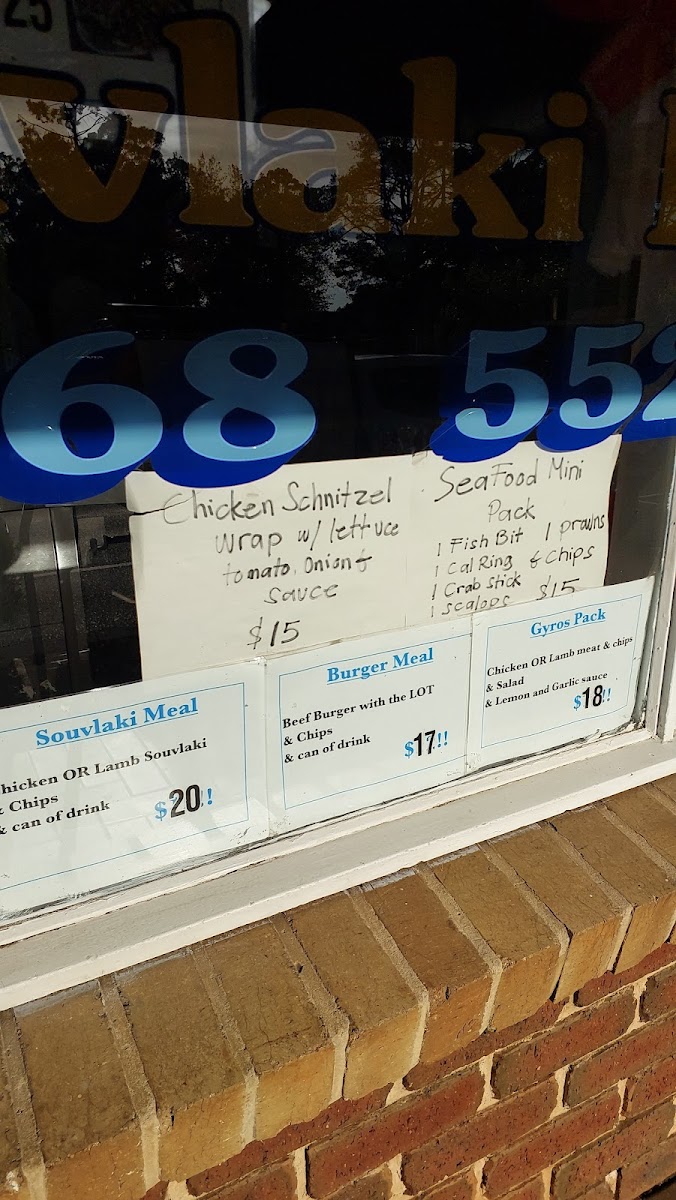 25
vlaki
68 552
Chicken Schnitzel
wrap w/ lettuce
tomato, Onion &
Sauce
$15
SeaFood Mini
Pack
1 Fish Bit 1 prawns
1 Cal Ring & Chips
1 Crab stick
1 scalops $15
Souvlaki Meal
hicken OR Lamb Souvlaki
& Chips
& can of drink
$20!!
Burger Meal
Beef Burger with the LOT
& Chips
& can of drink
$17!!
Gyros Pack
Chicken OR Lamb meat & chips
& Salad
& Lemon and Garlic sauce
$18!!